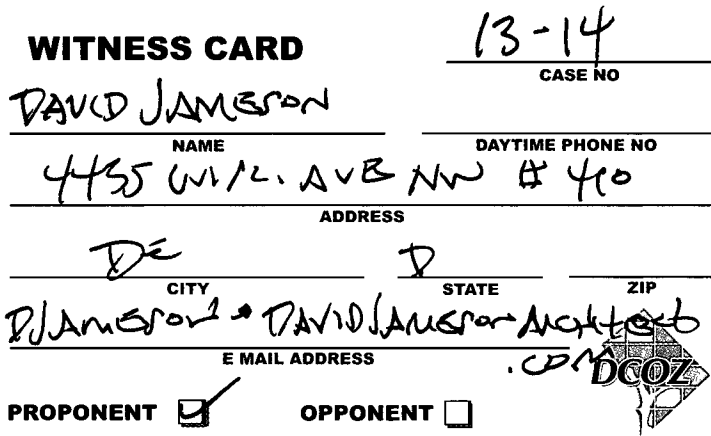 WITNESS CARD
13-14
CASE NO
DAVID JAMESON
NAME
DAYTIME PHONE NO
4455 AVE NW #
ADDRESS
DC D
CITY
STATE
ZIP
DAVIDJAMESONARCHITECT
.COM
E MAIL ADDRESS
DCOZ
PROPONENT
OPPONENT